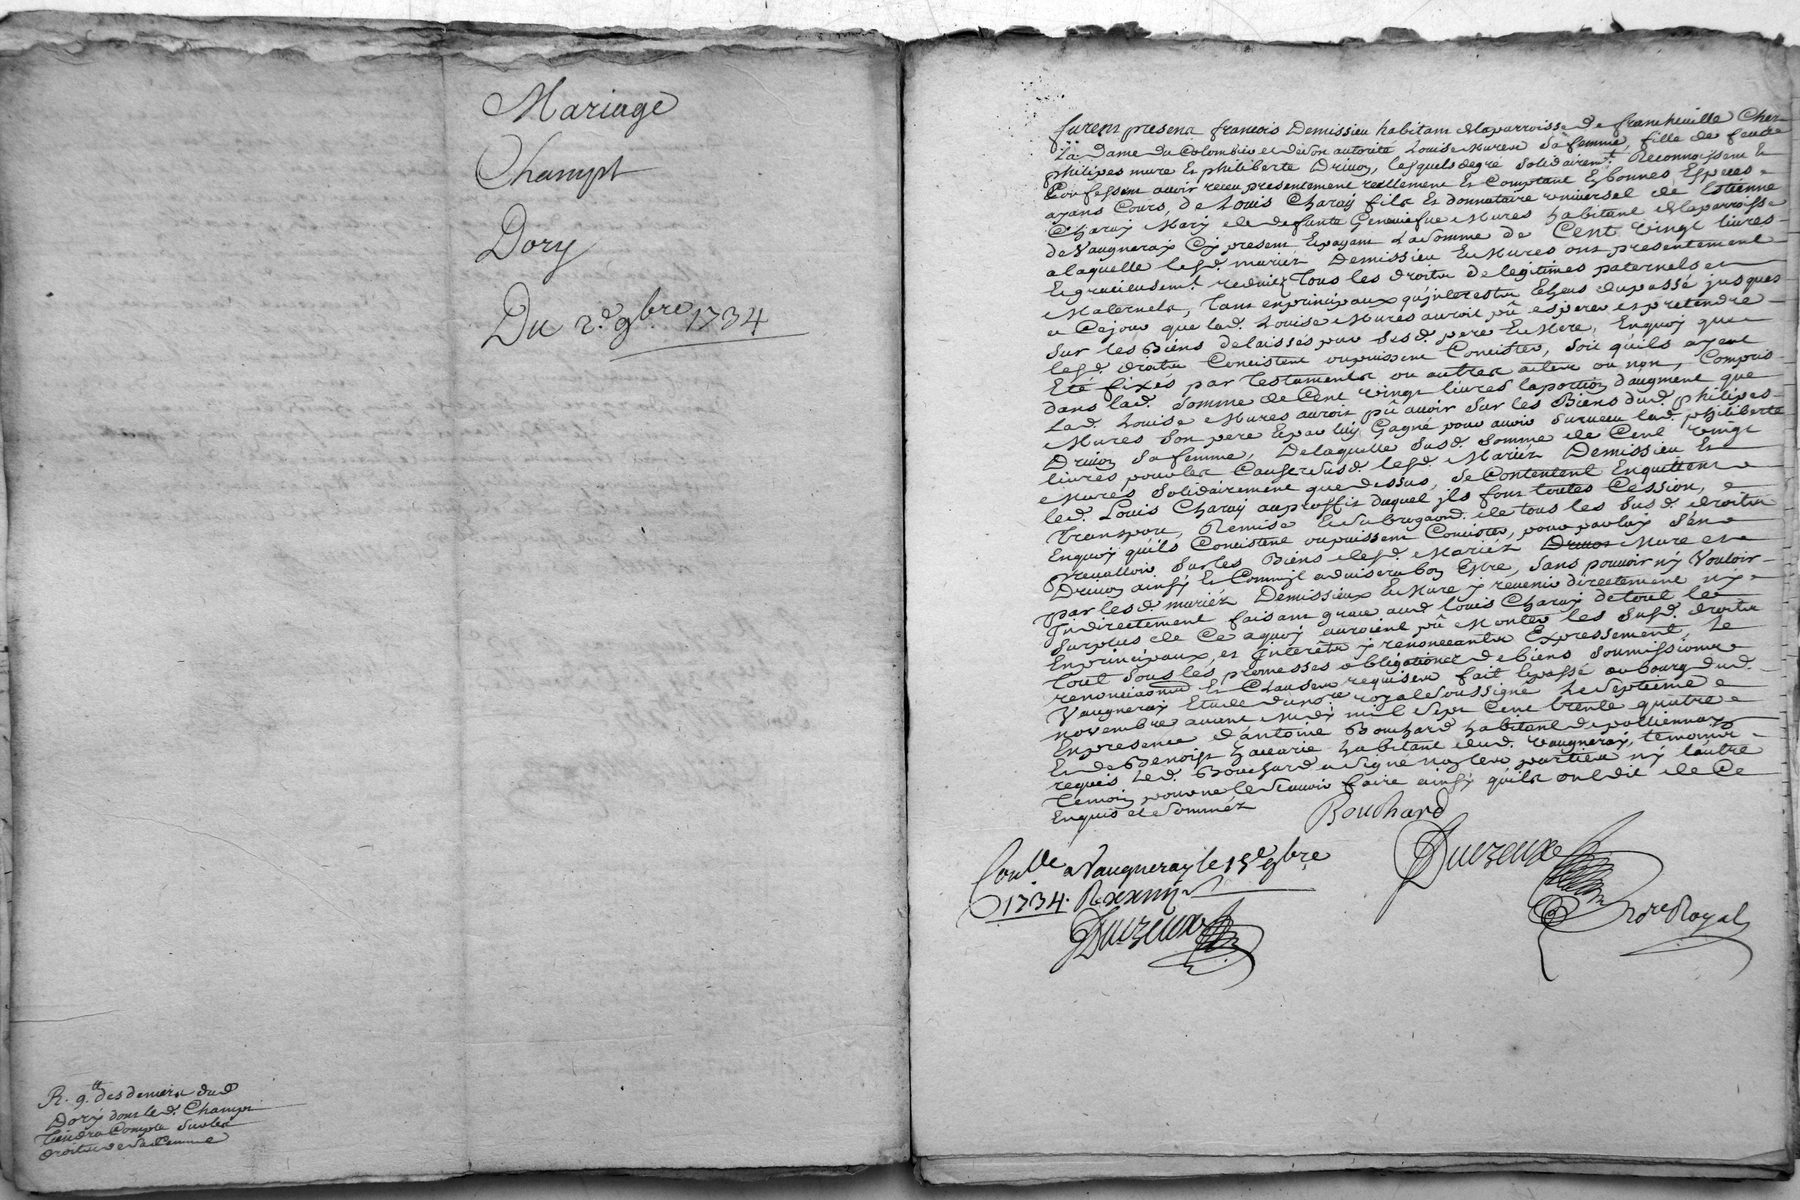 Mariage
Champt
Dory
Du 2e. 9bre 1734
R. 9tt des deniers dud
Dory dont led. Champt
tiendra Compte sur les
droits de sa femme
furent presens francois Demissieu habitant de la parroisse de francheville Chez
La dame du Colombier et de son autorité Louise Mures sa femme, fille de feu
philipes mure et philiberte Drivon, lesquels de gré solidairemt. Reconnoissent et
Confessent avoir receu presentement reellement et Comptant Es bonnes Especes
ayans Cours, de Louis Charay fils et donnataire universel de Estienne
Charay Mary de defunte Geneviefve Mures habitant de la parroisse
de Vaugneray Cy present Et payant La somme de Cent vingt livres
a laquelle lesd. mariez Demissieu Et Mures ont presentement
Et gracieusemt. reduit Tous les droits de legitimes paternels et
Maternels, Tant en principaux qu'interests Echeus du passé jusques
a Cejour que lad. Louise Mures auroit pû esperer et pretendre
sur les Biens delaissés par sesd. pere Et Mere, En quoy que
lesd. droits Concistent ou puissent Concister, soit qu'ils ayent
Eté fixés par testaments ou autres actes ou non, Compris
dans lad. somme de Cent vingt livres la portion d'augment que
Lad. Louise Mures auroit pû avoir sur les Biens dud. philipes
Mures son pere Et par luy Gagné pour avoir survecu lad. philiberte
Drivon sa femme, De laquelle susd. somme de Cent vingt
livres pour les Causes susd. lesd. Mariéz Demissieu Et
Mures solidairement que dessus, se Contentent En quittent
led. Louis Charay au proffit duquel ils font toutes Cession,
Transport, Remise Et subrogaon. de tous les susd. droits
En quoy qu'ils Concistent ou puissent Concister, pour par luy s'en
prevalloir sur les Biens desd. Mariéz Drivon Mure et
Drivon ainsy Et Comm'il advisera bon Estre, sans pouvoir ny Vouloir
par lesd. mariéz Demissieux Et Mure y revenir directement ny
Indirectement faisant grace aud. Louis Charay de tout le
surplus de Ce a quoy auroient pû Monter les susd. droits
En principaux, et Interêts y renonceants Expressement, Le
Tout sous les promesses obligations de biens soumissions
renonciaons Et Clauses requises fait Et passé au bourg dud.
Vaugneray Etude du nore. royal soussigné Le septieme
novembre avant Midy mil sept Cent trente quatre
En presence d'antoine Bouchard habitant de pollionnay
Et de Benoist habitant dud. Vaugneray, temoins
requis Led. Bouchard a signé non les parties ny l'autre
Temoin pour ne le sçavoir faire ainsy qu'ils ont dit de Ce
Enquis et sommés
Bouchard
Duezeuxe
Nore Royal
Conlle a Vaugneray le 15e 9bre
1734. R.
Duezeuxe